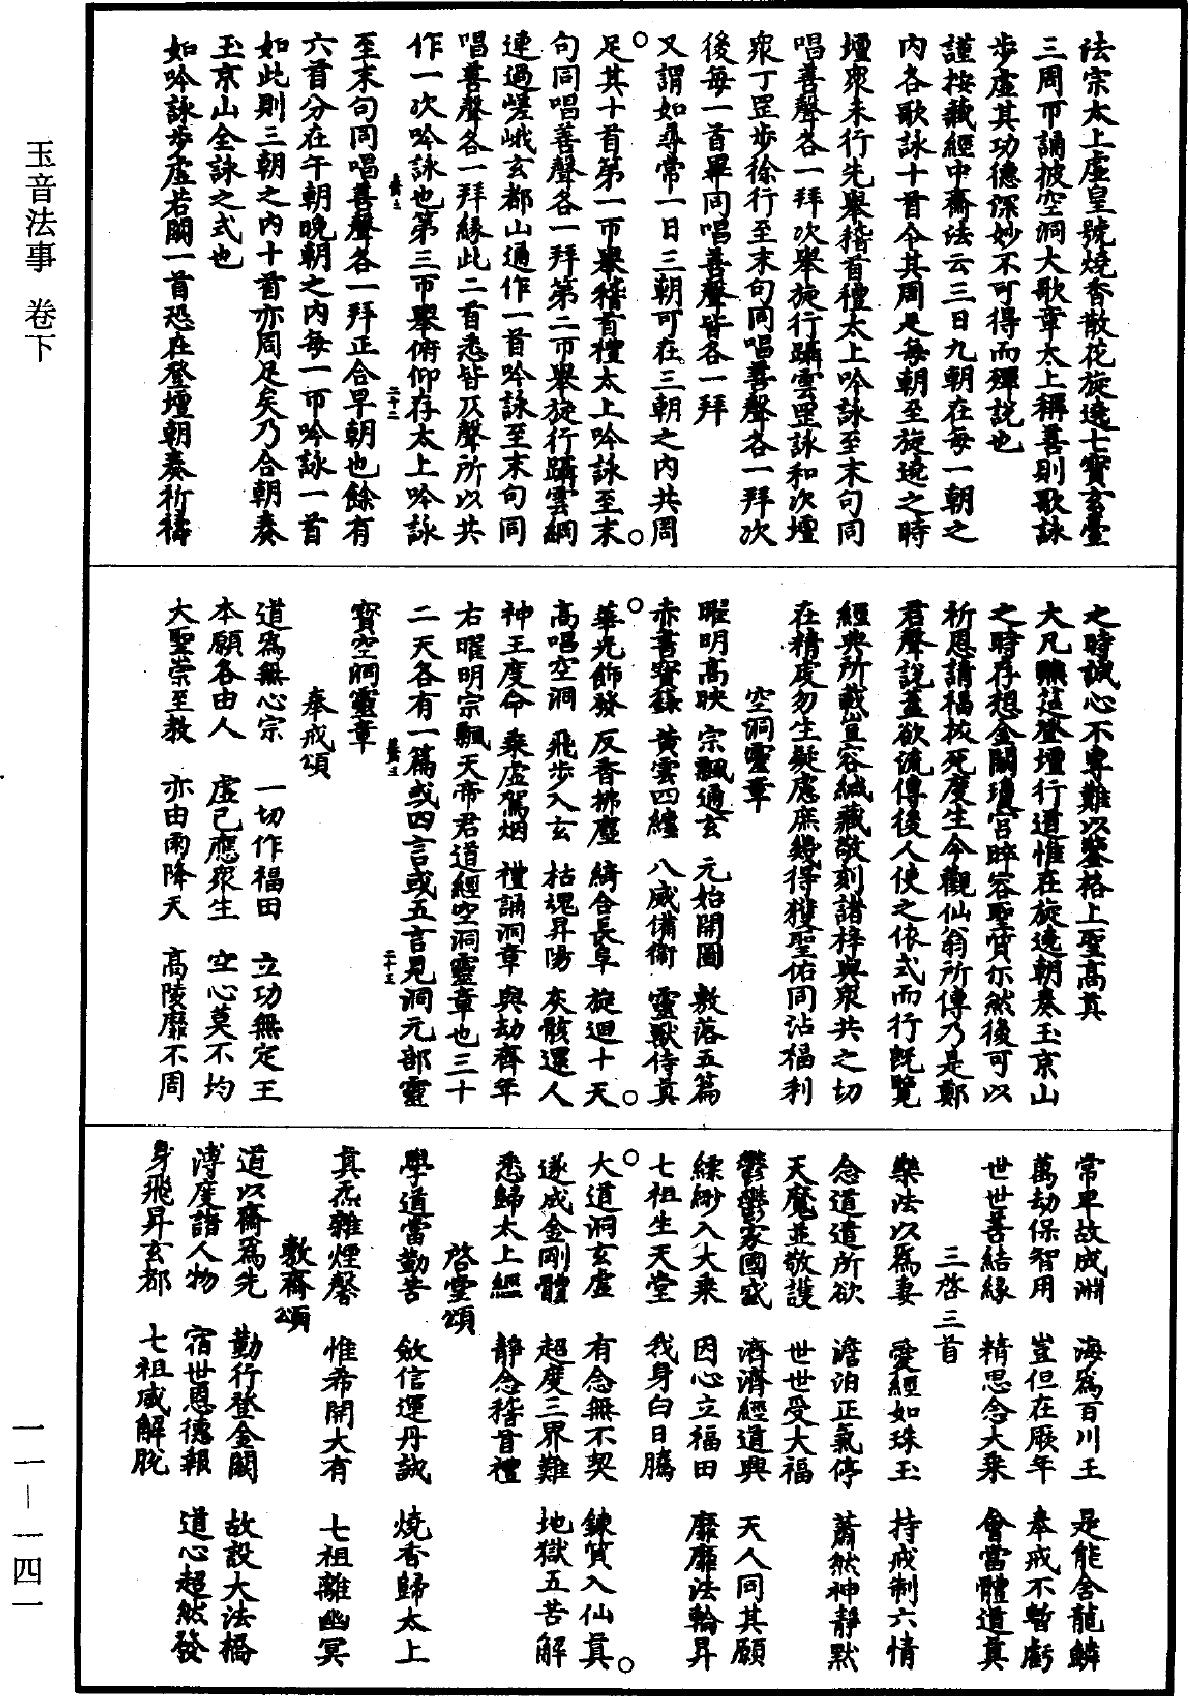 法宗太上虛皇號燒香散花旋遶七寶玄臺
三周帀誦披空洞大歌章太上稱善則歌詠
步虛其功德深妙不可得而殫説也
謹按藏經中齋法云三日九朝在每一朝之
內各歌詠十首令其周足每朝至旋遶之時
壇衆未行先舉稽首禮太上吟詠至末句同
唱善聲各一拜次舉旋行躡雲罡詠和次壇
衆丁罡步徐行至末句同唱善聲各一拜次
後每一首畢同唱善聲皆各一拜
又謂如尋常一日三朝可在三朝之內共周
足其十首第一帀舉稽首禮太上吟詠至末
句同唱善聲各一拜第二帀舉旋行躡雲綱
連過嵯峨玄都山通作一首吟詠至末句同
唱善聲各一拜緣此二首悉皆仄聲所以共
作一次吟詠也第三帀舉俯仰存太上吟詠
至末句同唱善聲各一拜正合早朝也餘有
六首分在午朝晚朝之內每一帀吟詠一首
如此則三朝之內十首亦周足矣乃合朝奏
玉京山全詠之式也
如吟詠步虛若闕一首恐在登壇朝奏祈禱
之時誠心不專難以鑒格上聖高真
大凡臨筵登壇行道惟在旋遶朝奏玉京山
之時存想金闕瓊宮晬容聖質亦然後可以
祈恩請福拔死度生今觀仙翁所傳乃是鄭
君聲説蓋欲流傳後人使之依式而行既覽
經典所載豈容緘藏敬刻諸梓與衆共之切
在精虔勿生疑慮庶幾得獲聖佑同沾福利
空洞靈章
曜明高映 宗飄通玄 元始開圖 敷落五篇
赤書寶籙 黃雲四纏 八威備衛 靈獸侍真
華光飾發 反香拂塵 綺合長阜 旋迴十天
高唱空洞 飛步入玄 枯魂昇陽 灰骸還人
神王度命 乘虛駕烟 禮誦洞章 與劫齊年
右曜明宗飄天帝君道經空洞靈章也三十
二天各有一篇或四言或五言見洞元部靈
寶空洞靈章
奉戒頌
道爲無心宗 一切作福田 立功無定主
本願各由人 虛己應衆生 空心莫不均
大聖崇至教 亦由雨降天 高陵靡不周
常卑故成淵 海爲百川王 是能舍龍鱗
萬劫保智用 豈但在厥年 奉戒不暫虧
世世善結緣 精思念大乘 會當體道真
三啓三首
樂法以爲妻 愛經如珠玉 持戒制六情
念道遣所欲 澹泊正氣停 蕭然神靜默
天魔並敬護 世世受大福
鬱鬱家國盛 濟濟經道興 天人同其願
縹緲入大乘 因心立福田 靡靡法輪昇
七祖生天堂 我身白日騰
大道洞玄虛 有念無不契 鍊質入仙真
遂成金剛體 超度三界難 地獄五苦解
悉歸太上經 靜念稽首禮
啓堂頌
學道當勤苦 斂信運丹誠 燒香歸太上
真炁雜煙馨 惟希開大有 七祖離幽冥
敷齋頌
道以齋爲先 勤行登金闕 故設大法橋
溥度諸人物 宿世恩德報 道心超然發
身飛昇玄都 七祖咸解脫
玉音法事 卷下
一一－一四一